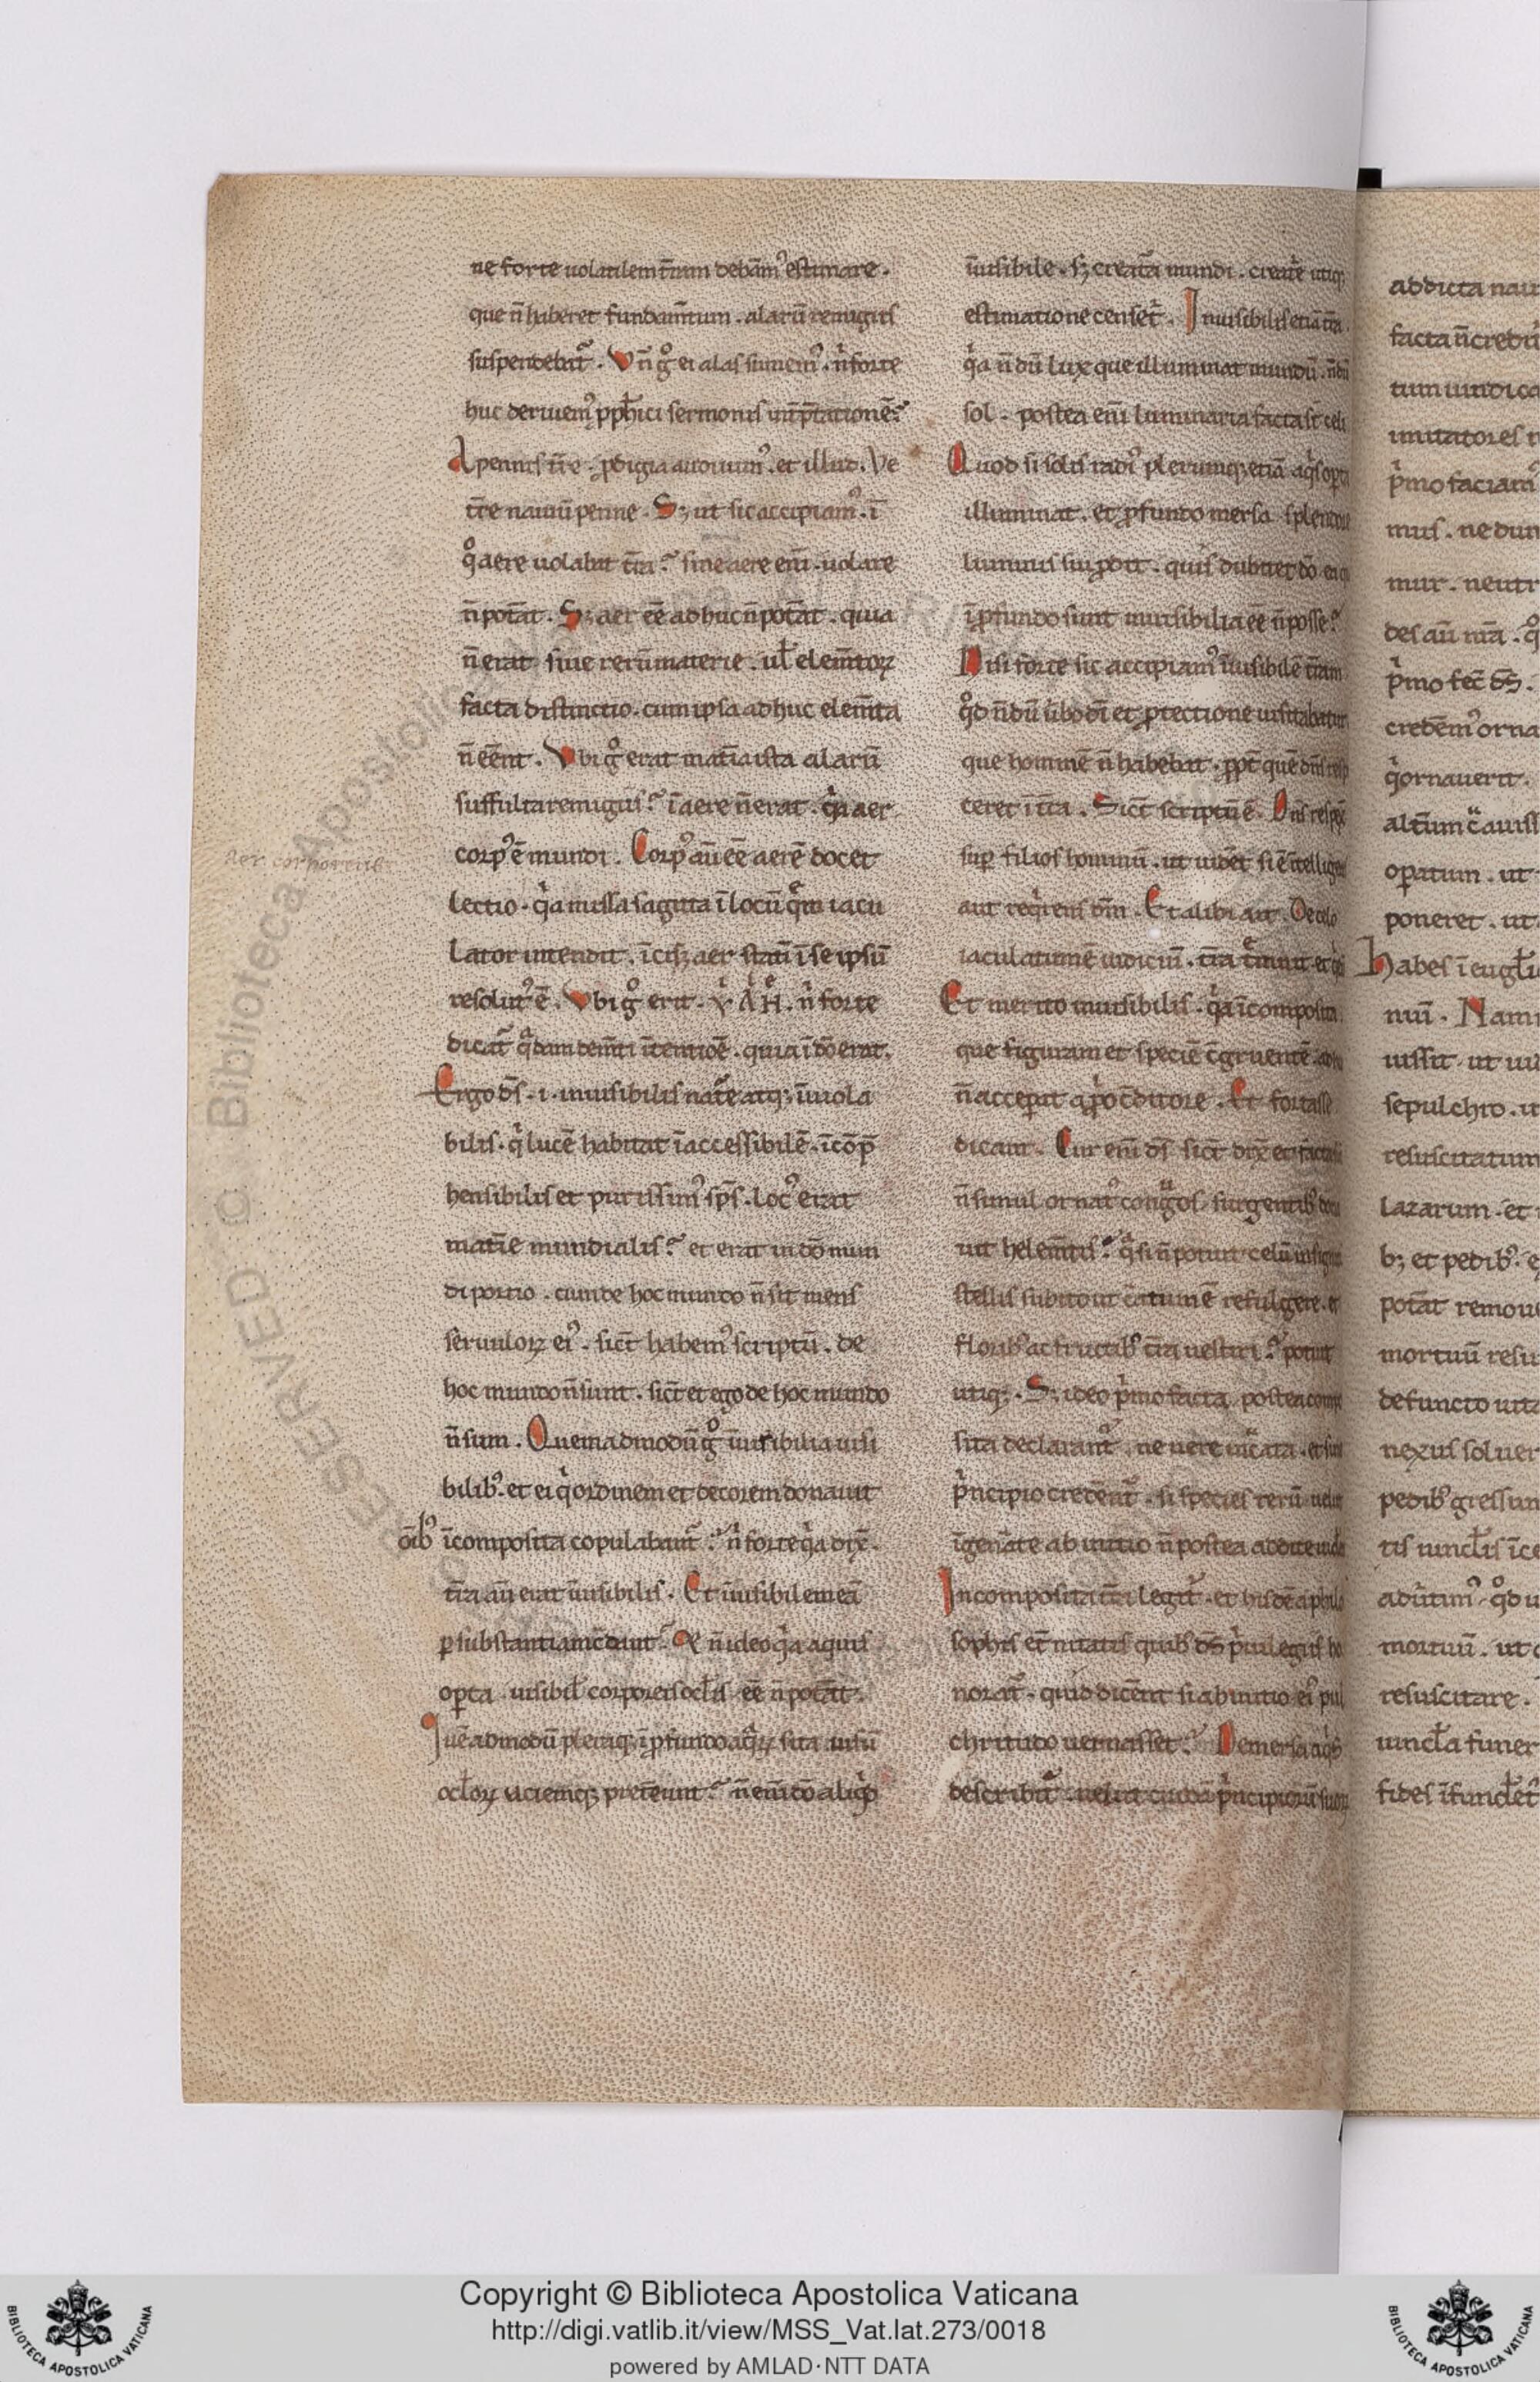 ne forte uolatilem t̄ram debam᷒ estimare.
que n̄ haberet fundam̄tum. alarū remigiis
suspendebat᷑. Vn̄ gͦ ei alas sumem᷒. nͥ forte
huc deriuem᷒ pph̄ici sermonis int̄p̄tationē?
A pennis t̄re. pdigia audiuim᷒. et illud. Ve
t̄re nauiū penne. S; ut sic accipiam᷒. ī
qͦ aere uolabat t̄ra? sine aere eni᷑. uolare
n̄ potāt. S; aer eē adhuc n̄ potāt. quia
n̄ erat sine rerū materie. ul̄ elem̄toꝝ
facta distinctio. cum ipsa adhuc elem̄ta
n̄ eēnt. Vbi gͦ erat mat̄ia ista alarū
suffulta remigiis? ī aere n̄ erat. qͥa aer
corp᷒ ē mundi. Corp᷒ aū eē aerē docet
lectio. qͥa missa sagitta ī locū quē iacu
lator intendit. īcis; aer statī ī se ipsū
resolut᷒ ē. Vbi gͦ erit. nͥ forte
dicat᷑ qͣdam dem̄ti ītentiōē. quia ī dō erat.
Ergo d̄s. i. inuisibilis nat᷑e atq; īuiola
bilis. qͥ lucē habitat īaccessibilē. īcōp̄
hensibilis et purissim᷒ sp̄s. loc᷒ erat
mat̄ie mundialis? et erat in dō mun
di portio. cum de hoc mundo n̄ sit mens
seruuloꝝ ei᷒. sic̄t habem᷒ scriptū. de
hoc mundo n̄ sunt. sic̄t et ego de hoc mundo
n̄ sum. Quemadmodū gͦ īuisibilia uisi
bilib᷒. et ei qͥ ordinem et decorem donauit
oīb᷒ īcomposita copulabant᷑? nͥ forte qͥa dix̄.
t̄ra aū erat īuisibilis. Et īuisibilem eā
ꝑ substantiam c̄dunt? Et n̄ ideo qͥa aquis
opta uisibil̄ corporeis ocl̄is eē n̄ potāt.
Quēadmodū pleraq; ī pfundo aqͣꝝ sita uisū
ocl̄oꝝ aciemq; pret̄eunt? n̄ eni᷑ dō aliqͥd
Aer corporeus
īuisibile. s; creat᷑a mundi. creat᷑e utiq;
estimatione censet᷑. Inuisibilis etiā t̄ra.
qͥa n̄dū lux que illuminat mundū. n̄dū
sol. postea eni᷑ luminaria facta st̄ celi
Quod si solis radi᷒ plerumq; etiā aqͥs opta
illuminat. et pfundo mersa splendore
luminis sui pdit. quis dubitet dō ea q̄
ī pfundo sunt inuisibilia eē n̄ posse?
Nisi forte sic accipiam᷒ īuisibilē t̄ram
qͦd n̄dū ūbo dī et ptectione uisitabatur
que hominē n̄ habebat. ppt̄ quē dn̄s resp
ceret ī t̄ra. Sic̄t scriptū ē. Dn̄s respex̄
suꝑ filios hominū. ut uidēt si ē ītelligens
aut reqͥrens dm̄. Et alibi ait. De celo
iaculatum ē iudiciū. t̄ra t̄muit et qͥ
Et merito inuisibilis. qͥa īcomposita.
que figuram et speciē c̄gruentē adhuc
n̄ acceperat a ppo c̄ditore. Et fortasse
dicant. Cur eni᷑ d̄s sic̄t dix̄ et facta
n̄ simul ornat᷒ congͣos surgentib᷒ dona
uit helem̄tis? qͣsi n̄ potuit celū insigni
stellis subito ut c̄atum ē refulgere. et
florib᷒ ac fructib᷒ t̄ra uestiri? potuit
utiq;. S; ideo pͥmo facta postea compo
sita declarant᷑. ne uere inc̄ata. et sine
pͥncipio credēnt᷑. si species rerū uelut
īgen̄ate ab initio n̄ postea addite uide
Incomposita t̄ra legit᷑. et hisdē a philo
sophis et̄nitatis quib᷒ d̄s pͥuilegiis ho
norat᷑. quid dicēnt si ab initio ei᷒ pul
chritudo uernasset? Demersa aqͥs
describit᷑. uelut cuidā pͥncipiorū suoꝝ
addicta nau
facta n̄ credu
tum uindica
imitatores
pͥmo faciam᷒
mus. ne dum
mur. neutr
des aū nr̄a. qͦ
pͥmo fec̄ d̄s.
credēm᷒ orna
qͥ ornauerit.
alt̄um c̄auiss
opatum. ut
poneret. ut
Habes ī eugl̄i
nuī. Nam
iussit. ut ui
sepulchro. u
resuscitatum
lazarum. et
b; et pedib᷒.
potāt remou
mortuū resu
defuncto uita
nexus soluer
pedib᷒ gressum
tis uincl̄is īce
aduītim᷒. qͦd u
mortuū. ut
resuscitare.
uincl̄a funer
fides īfundēt
Copyright © Biblioteca Apostolica Vaticana
http://digi.vatlib.it/view/MSS_Vat.lat.273/0018
powered by AMLAD·NTT DATA